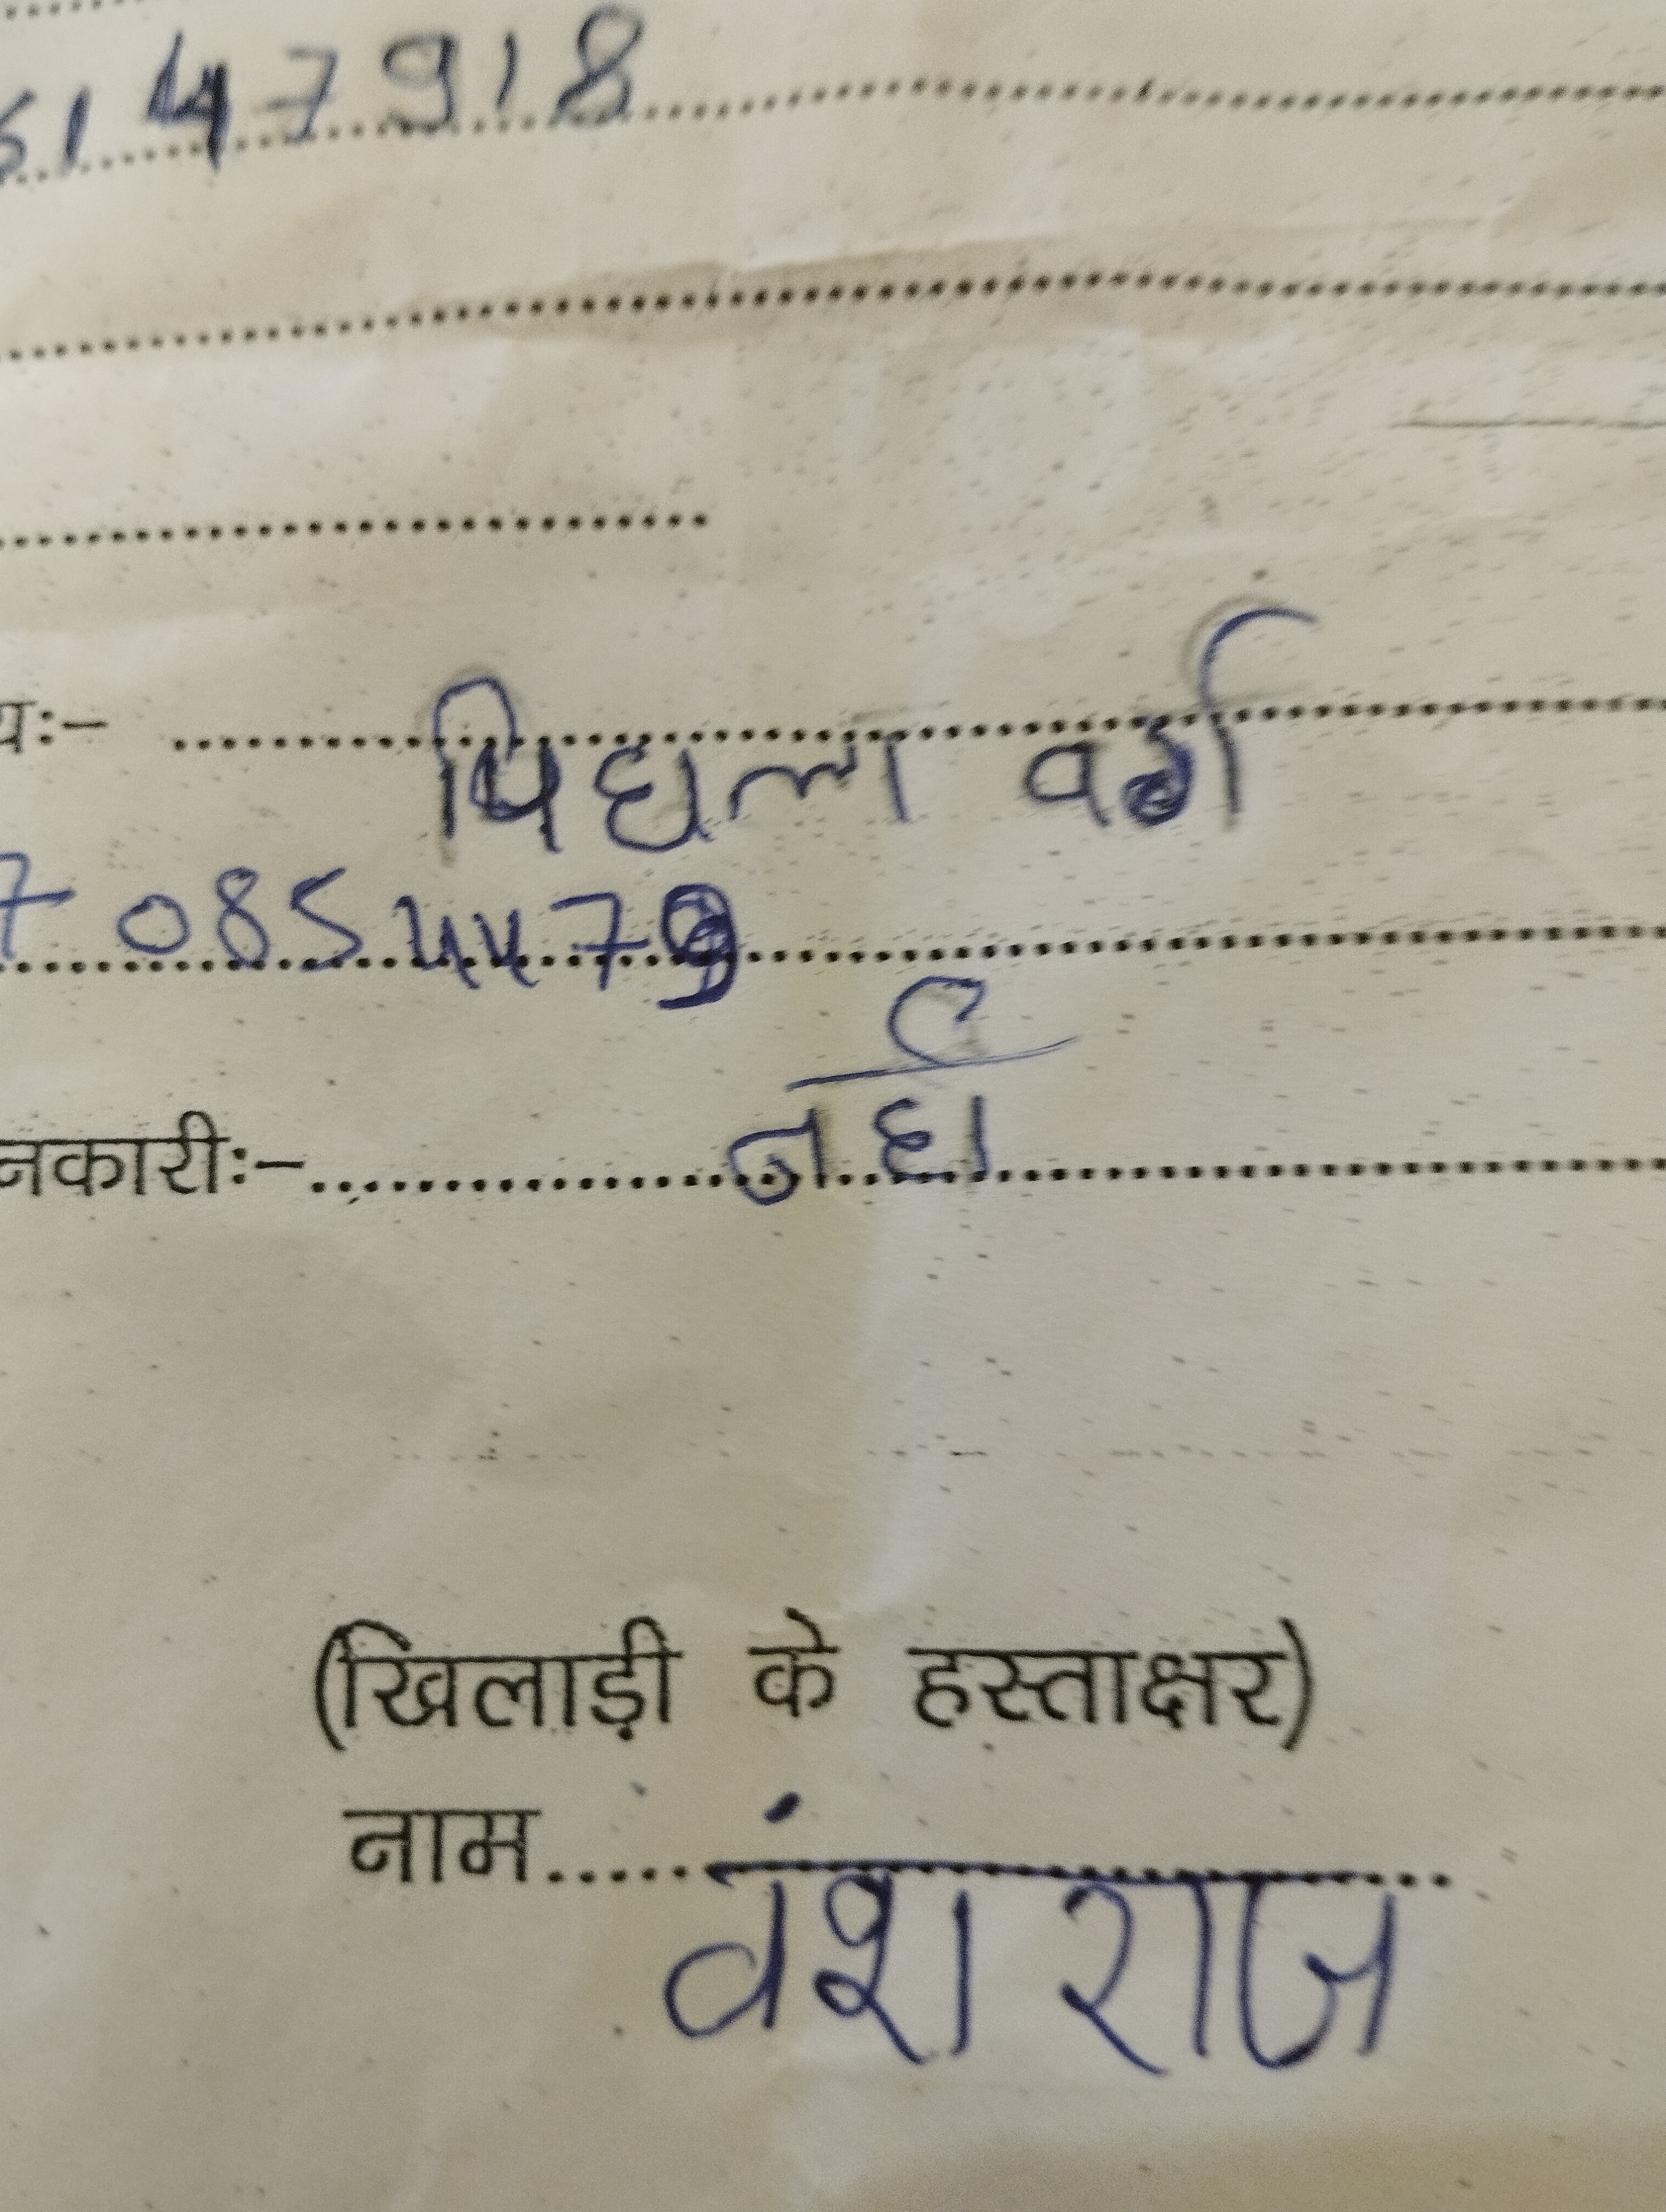 61 47918
यः–
पिघला वर्ग
7 0854479
नकारीः– नही
(खिलाड़ी के हस्ताक्षर)
नाम वंश राज